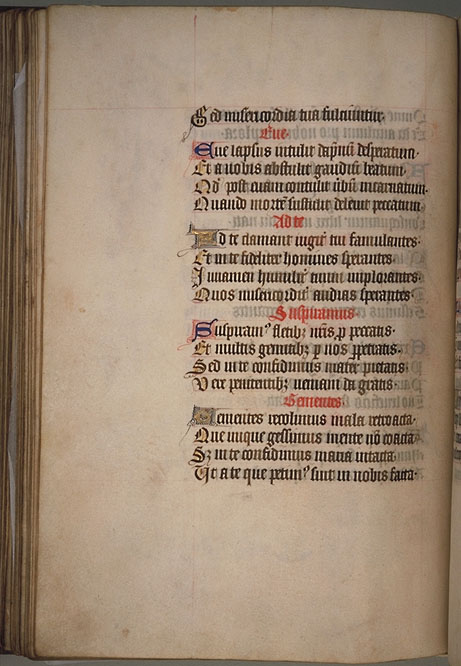 Sed misericordia tua fulciuntur.
Eue
Eue lapsus intulit dampnũ desperatum.
Et a nobis abstulit gaudiũ beatum.
Nõ post euam contigit verbũ incarnatum.
Quando mortẽ sustulit delens peccatum.
Ad te
Ad te clamant iugit᷑ tui famulantes.
Et in te fideliter homines sperantes.
Iuuamen humilit᷑ tuum implorantes
Quos misericordit᷑ audias sperantes.
Suspiramus
Suspiramꝰ fletibꝫ nr̃is ꝑ peccatis.
Et multis gemitibꝫ ꝑ nos ꝑpetratis.
Sed in te confidimus mater pietatis.
Vere penitentibꝫ veniam da gratis.
Gementes
Gementes recolimus mala retroacta.
Que inique gessimus mente nõ coacta
Sꝫ in te confidimus maria intacta.
Ut a te que petimꝰ sint in nobis facta.